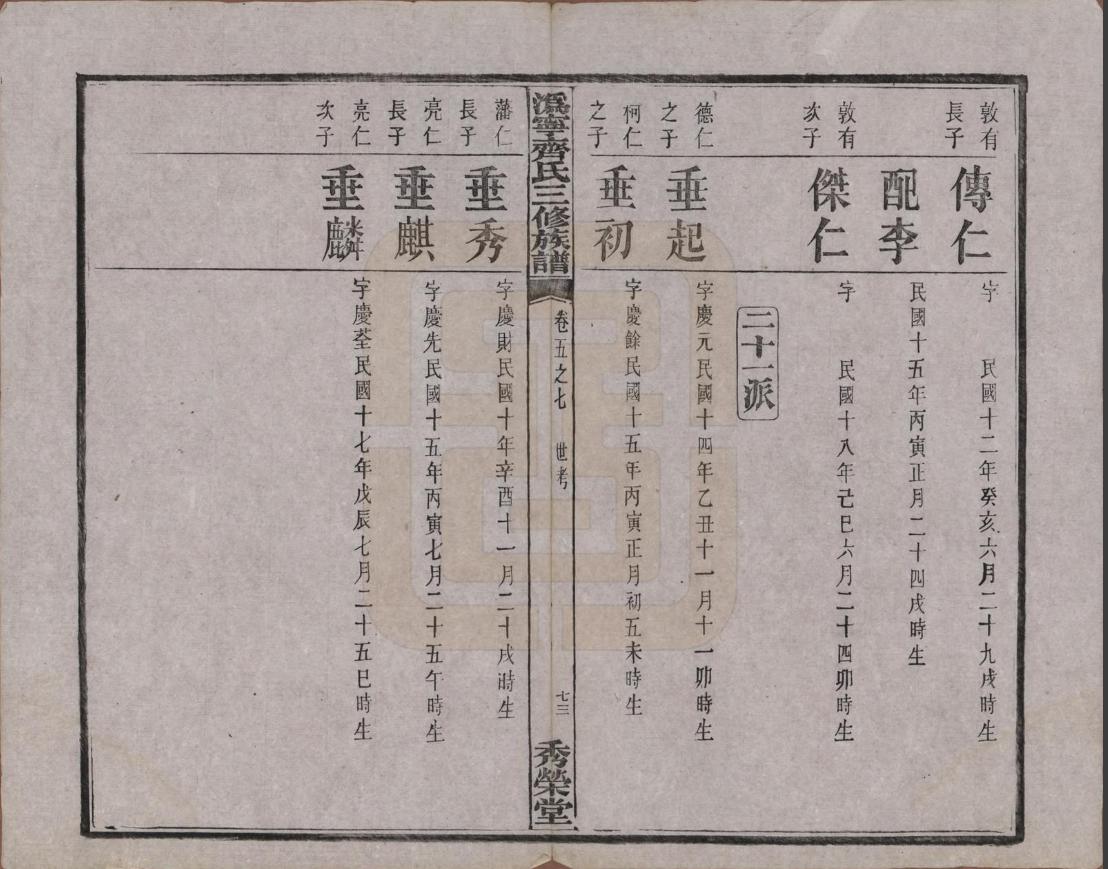 敦有長子
傳仁
字 民國十二年癸亥六月二十九戌時生
配李
民國十五年丙寅正月二十四戌時生
敦有次子
傑仁
字 民國十八年己巳六月二十四卯時生
二十一派
德仁之子
垂起
字慶元民國十四年乙丑十一月十一卯時生
柯仁之子
垂初
字慶餘民國十五年丙寅正月初五未時生
溈寧齊氏三修族譜
卷五之七 世考
七三
秀榮堂
藩仁長子
垂秀
字慶財民國十年辛酉十一月二十戌時生
亮仁長子
垂麒
字慶先民國十五年丙寅七月二十五午時生
亮仁次子
垂麟
字慶荃民國十七年戊辰七月二十五巳時生